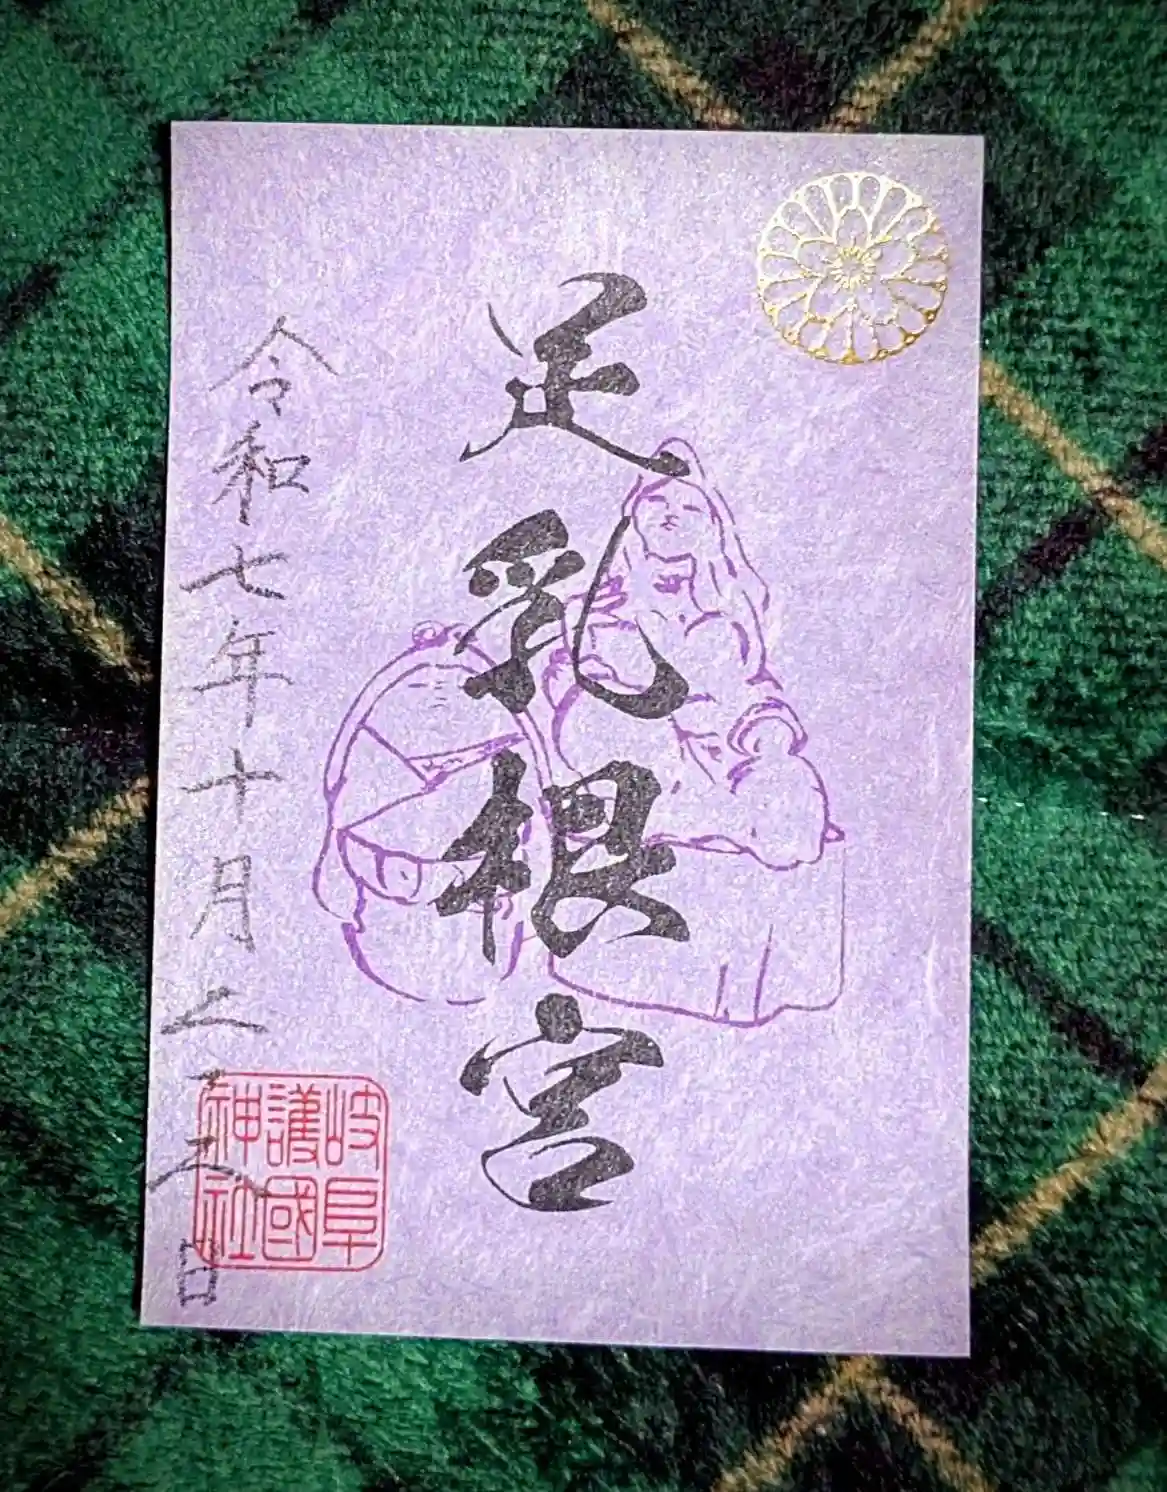 足乳根宮
令和七年十月日
岐阜
護國
神社